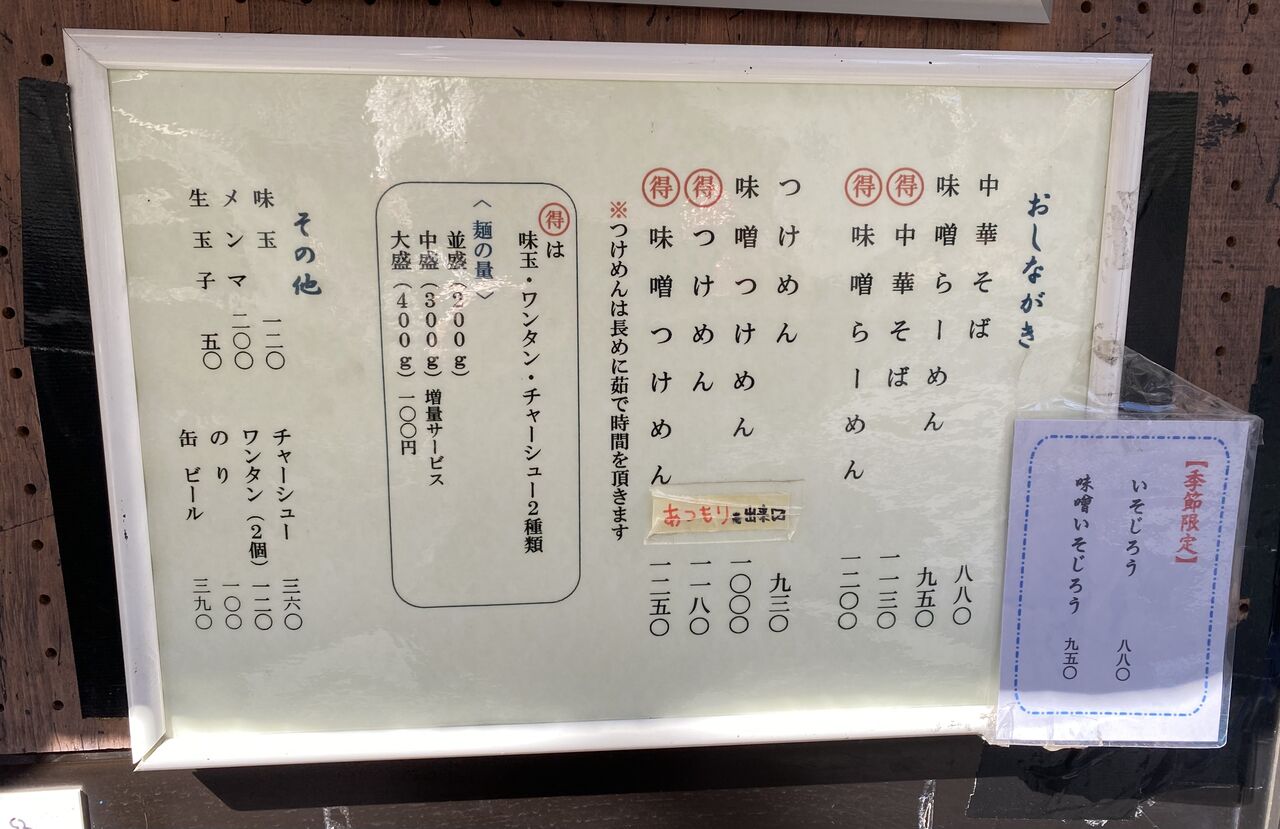 おしながき
中華そば 八八〇
味噌らーめん 九五〇
得 中華そば 一一三〇
得 味噌らーめん 一二〇〇
つけめん 九三〇
味噌つけめん 一〇〇〇
得 つけめん 一一八〇
得 味噌つけめん 一二五〇
あつもりも出来〼
※つけめんは長めに茹で時間を頂きます
得は
味玉・ワンタン・チャーシュー2種類
〈麺の量〉
並盛(200g)
中盛(300g)増量サービス
大盛(400g)一〇〇円
その他
味玉 一二〇
メンマ 二〇〇
生玉子 五〇
チャーシュー 三六〇
ワンタン(2個) 一二〇
のり 一〇〇
缶ビール 三九〇
【季節限定】
いそじろう 八八〇
味噌いそじろう 九五〇